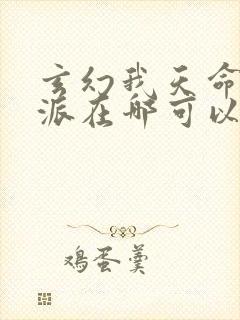 玄幻我天命
派在哪可以
鸡蛋羹